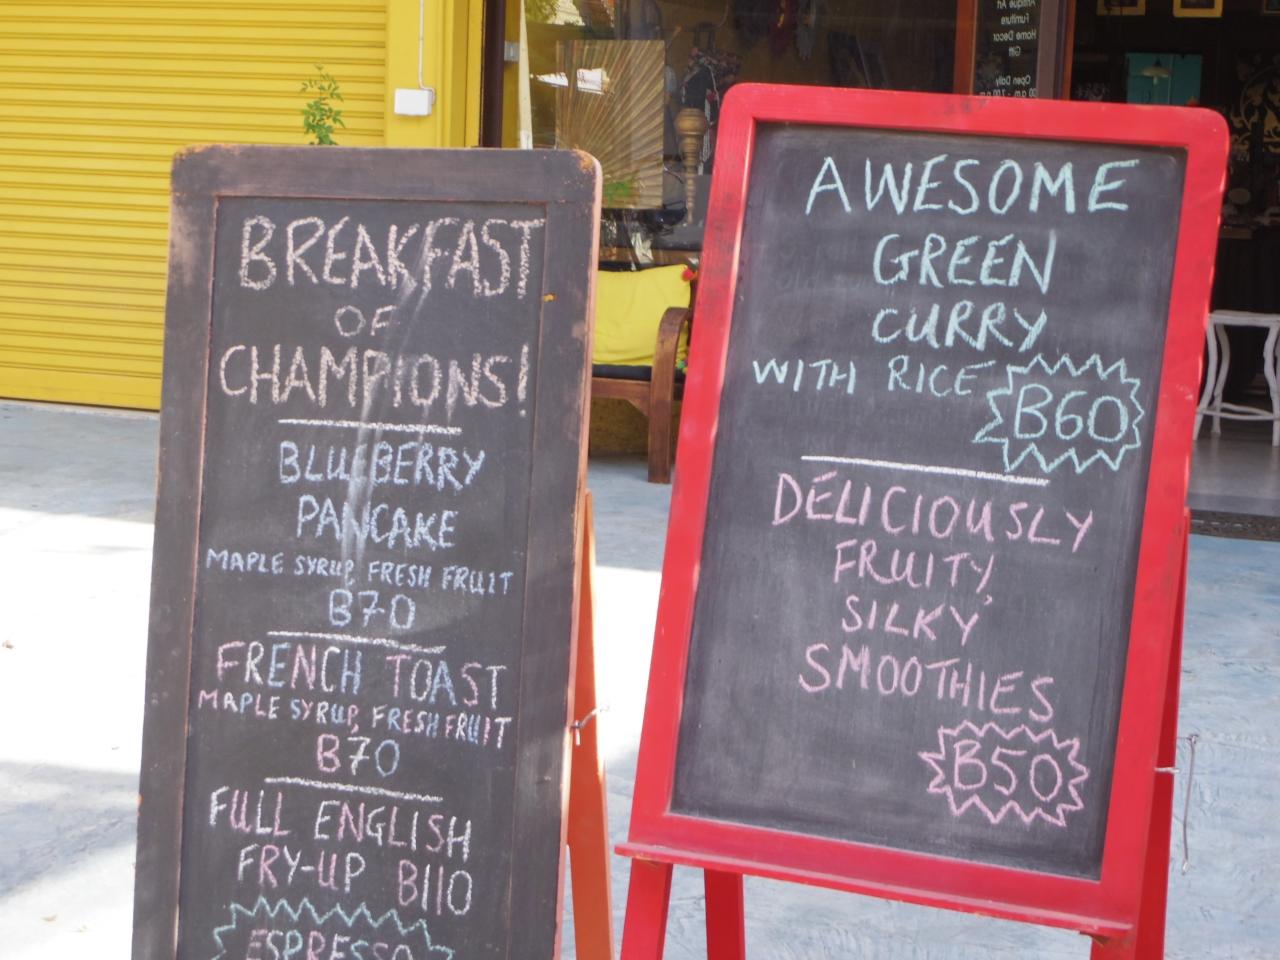 BREAKFAST
OF
CHAMPIONS!
BLUEBERRY
PANCAKE
MAPLE SYRUP, FRESH FRUIT
B70
FRENCH TOAST
MAPLE SYRUP, FRESH FRUIT
B70
FULL ENGLISH
FRY-UP B110
ESPRESSO
AWESOME
GREEN
CURRY
WITH RICE B60
DELICIOUSLY
FRUITY,
SILKY
SMOOTHIES
B50
Antique Art
Furniture
Home Decor
Gift
Open Daily